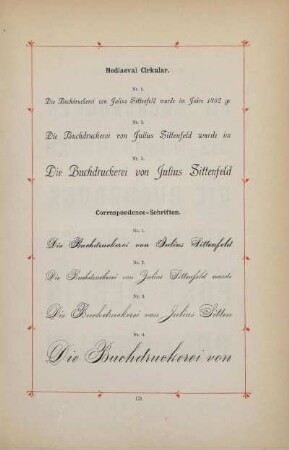 Mediaeval Cirkular.
Nr. 1.
Die Buchdruckerei von Julius Sittenfeld wurde im Jahre 1832 ge
Nr. 2.
Die Buchdruckerei von Julius Sittenfeld wurde im
Nr. 3.
Die Buchdruckerei von Julius Sittenfeld
Correspondence-Schriften.
No. 1.
Die Buchdruckerei von Julius Sittenfeld
No. 2.
Die Buchdruckerei von Julius Sittenfeld wurde
No. 3.
Die Buchdruckerei von Julius Sitten
No. 4.
Die Buchdruckerei von